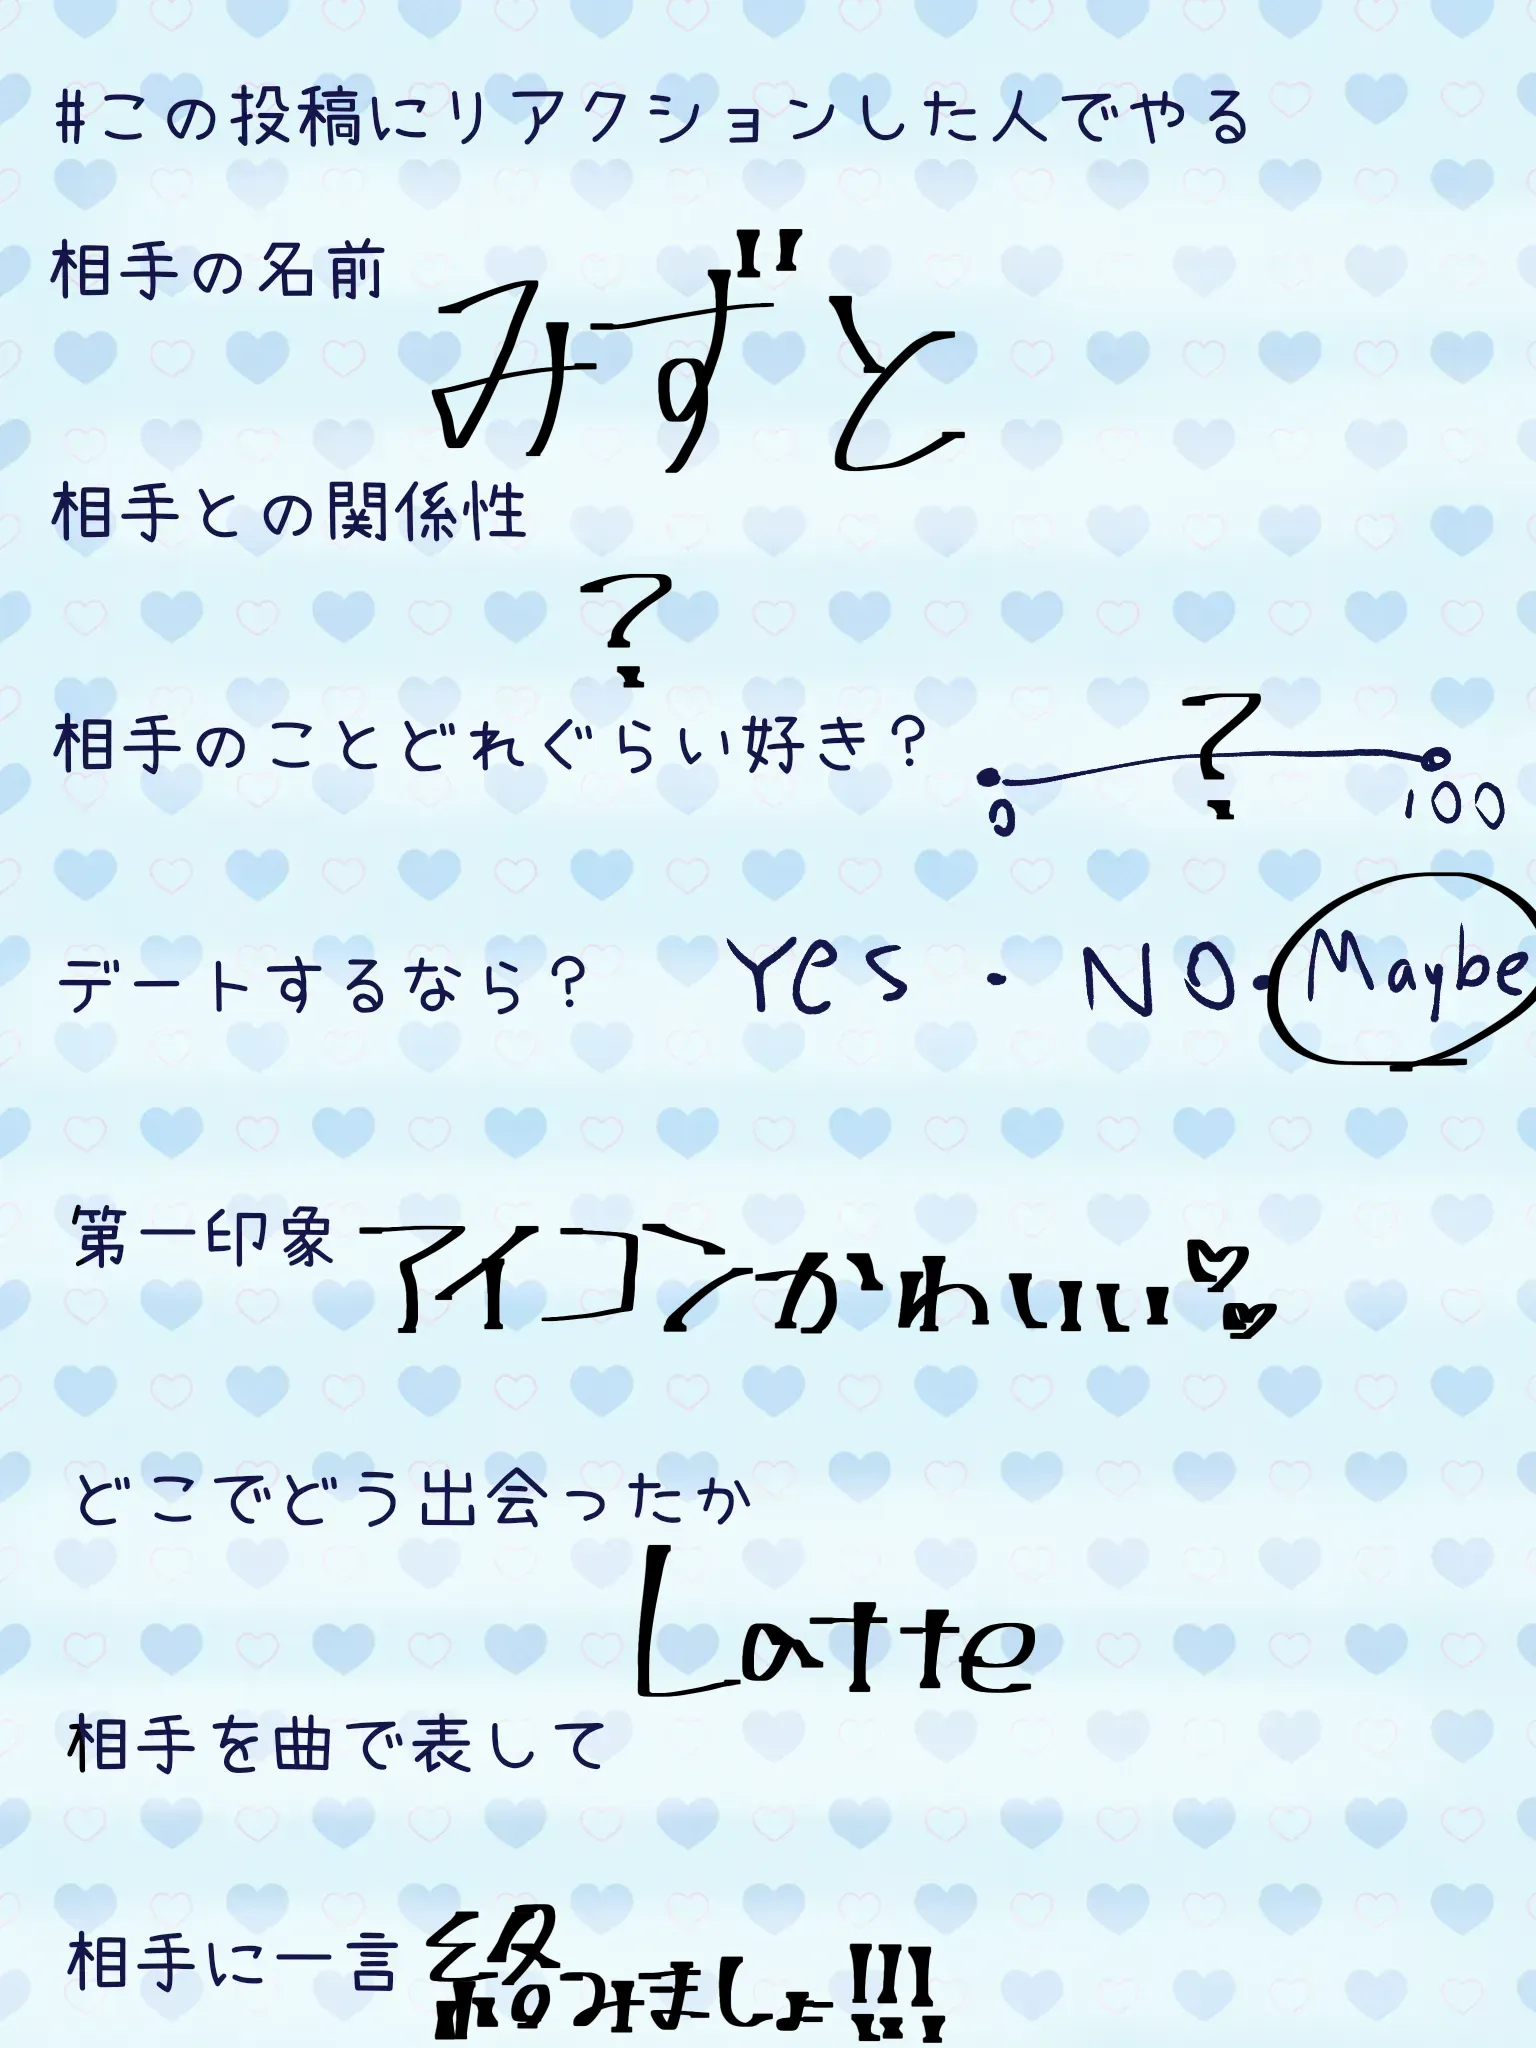 #この投稿にリアクションした人でやる
相手の名前 みずと
相手との関係性
?
相手のことどれぐらい好き? ?
0 100
デートするなら? Yes・NO・Maybe
第一印象 アイコンかわいい♡♡
どこでどう出会ったか
Latte
相手を曲で表して
相手に一言 絡みましょ!!!